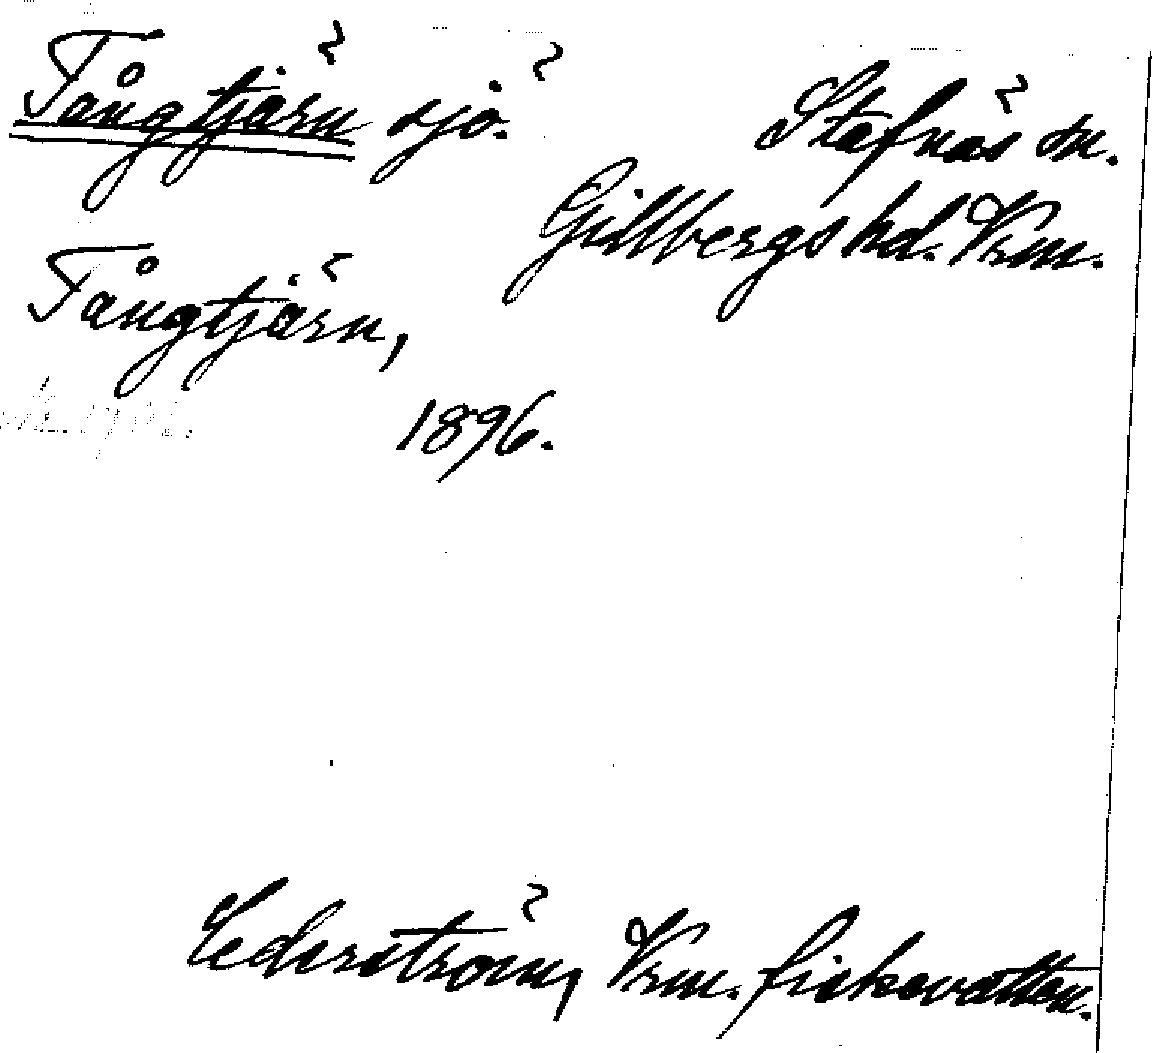 Tångtjärn sjö.
Stafnäs sn.
Gillbergs hd. Vrm.
Tångtjärn,
1896.
Cederström, Vrm. fiskevatten.